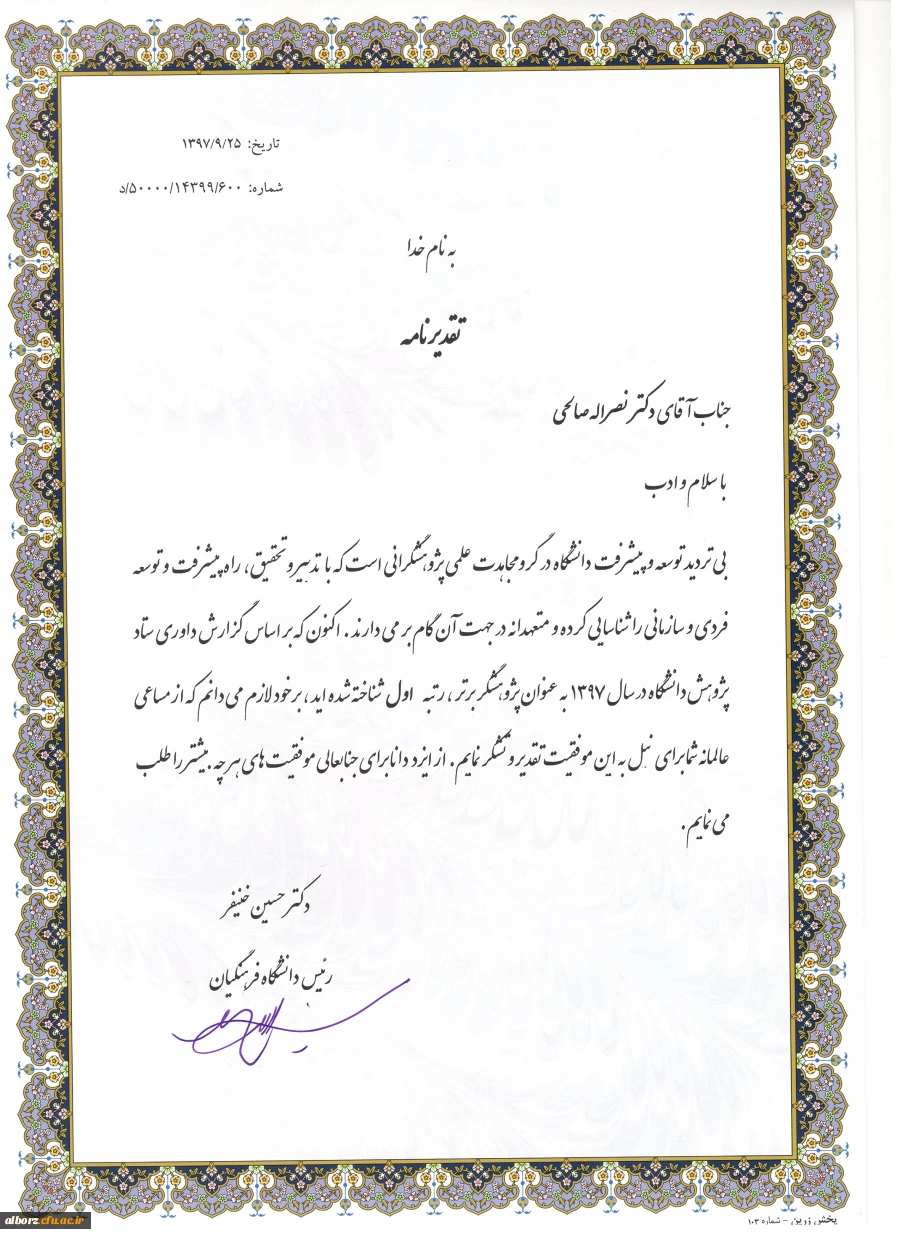 تاریخ: ۱۳۹۷/۹/۲۵
شماره: ۵۰۰۰۰/۱۴۳۹۹/۶۰۰/د
به نام خدا
تقدیرنامه
جناب آقای دکتر نصراله صالحی
با سلام و ادب
بی تردید توسعه و پیشرفت دانشگاه در گرو مجاهدت علمی پژوهشگرانی است که با تدبیر و تحقیق، راه پیشرفت و توسعه
فردی و سازمانی را شناسایی کرده و متعهدانه در جهت آن گام بر می دارند. اکنون که بر اساس گزارش داوری ستاد
پژوهش دانشگاه در سال ۱۳۹۷ به عنوان پژوهشگر برتر، رتبه اول شناخته شده اید، بر خود لازم می دانم که از مساعی
عالمانه شما برای نیل به این موفقیت تقدیر و تشکر نمایم. از ایزد دانا برای جنابعالی موفقیت های هر چه بیشتر را طلب
می نمایم.
دکتر حسین خنیفر
رئیس دانشگاه فرهنگیان
پخش زرین - شماره ۱۰۳
alborz.cfu.ac.ir